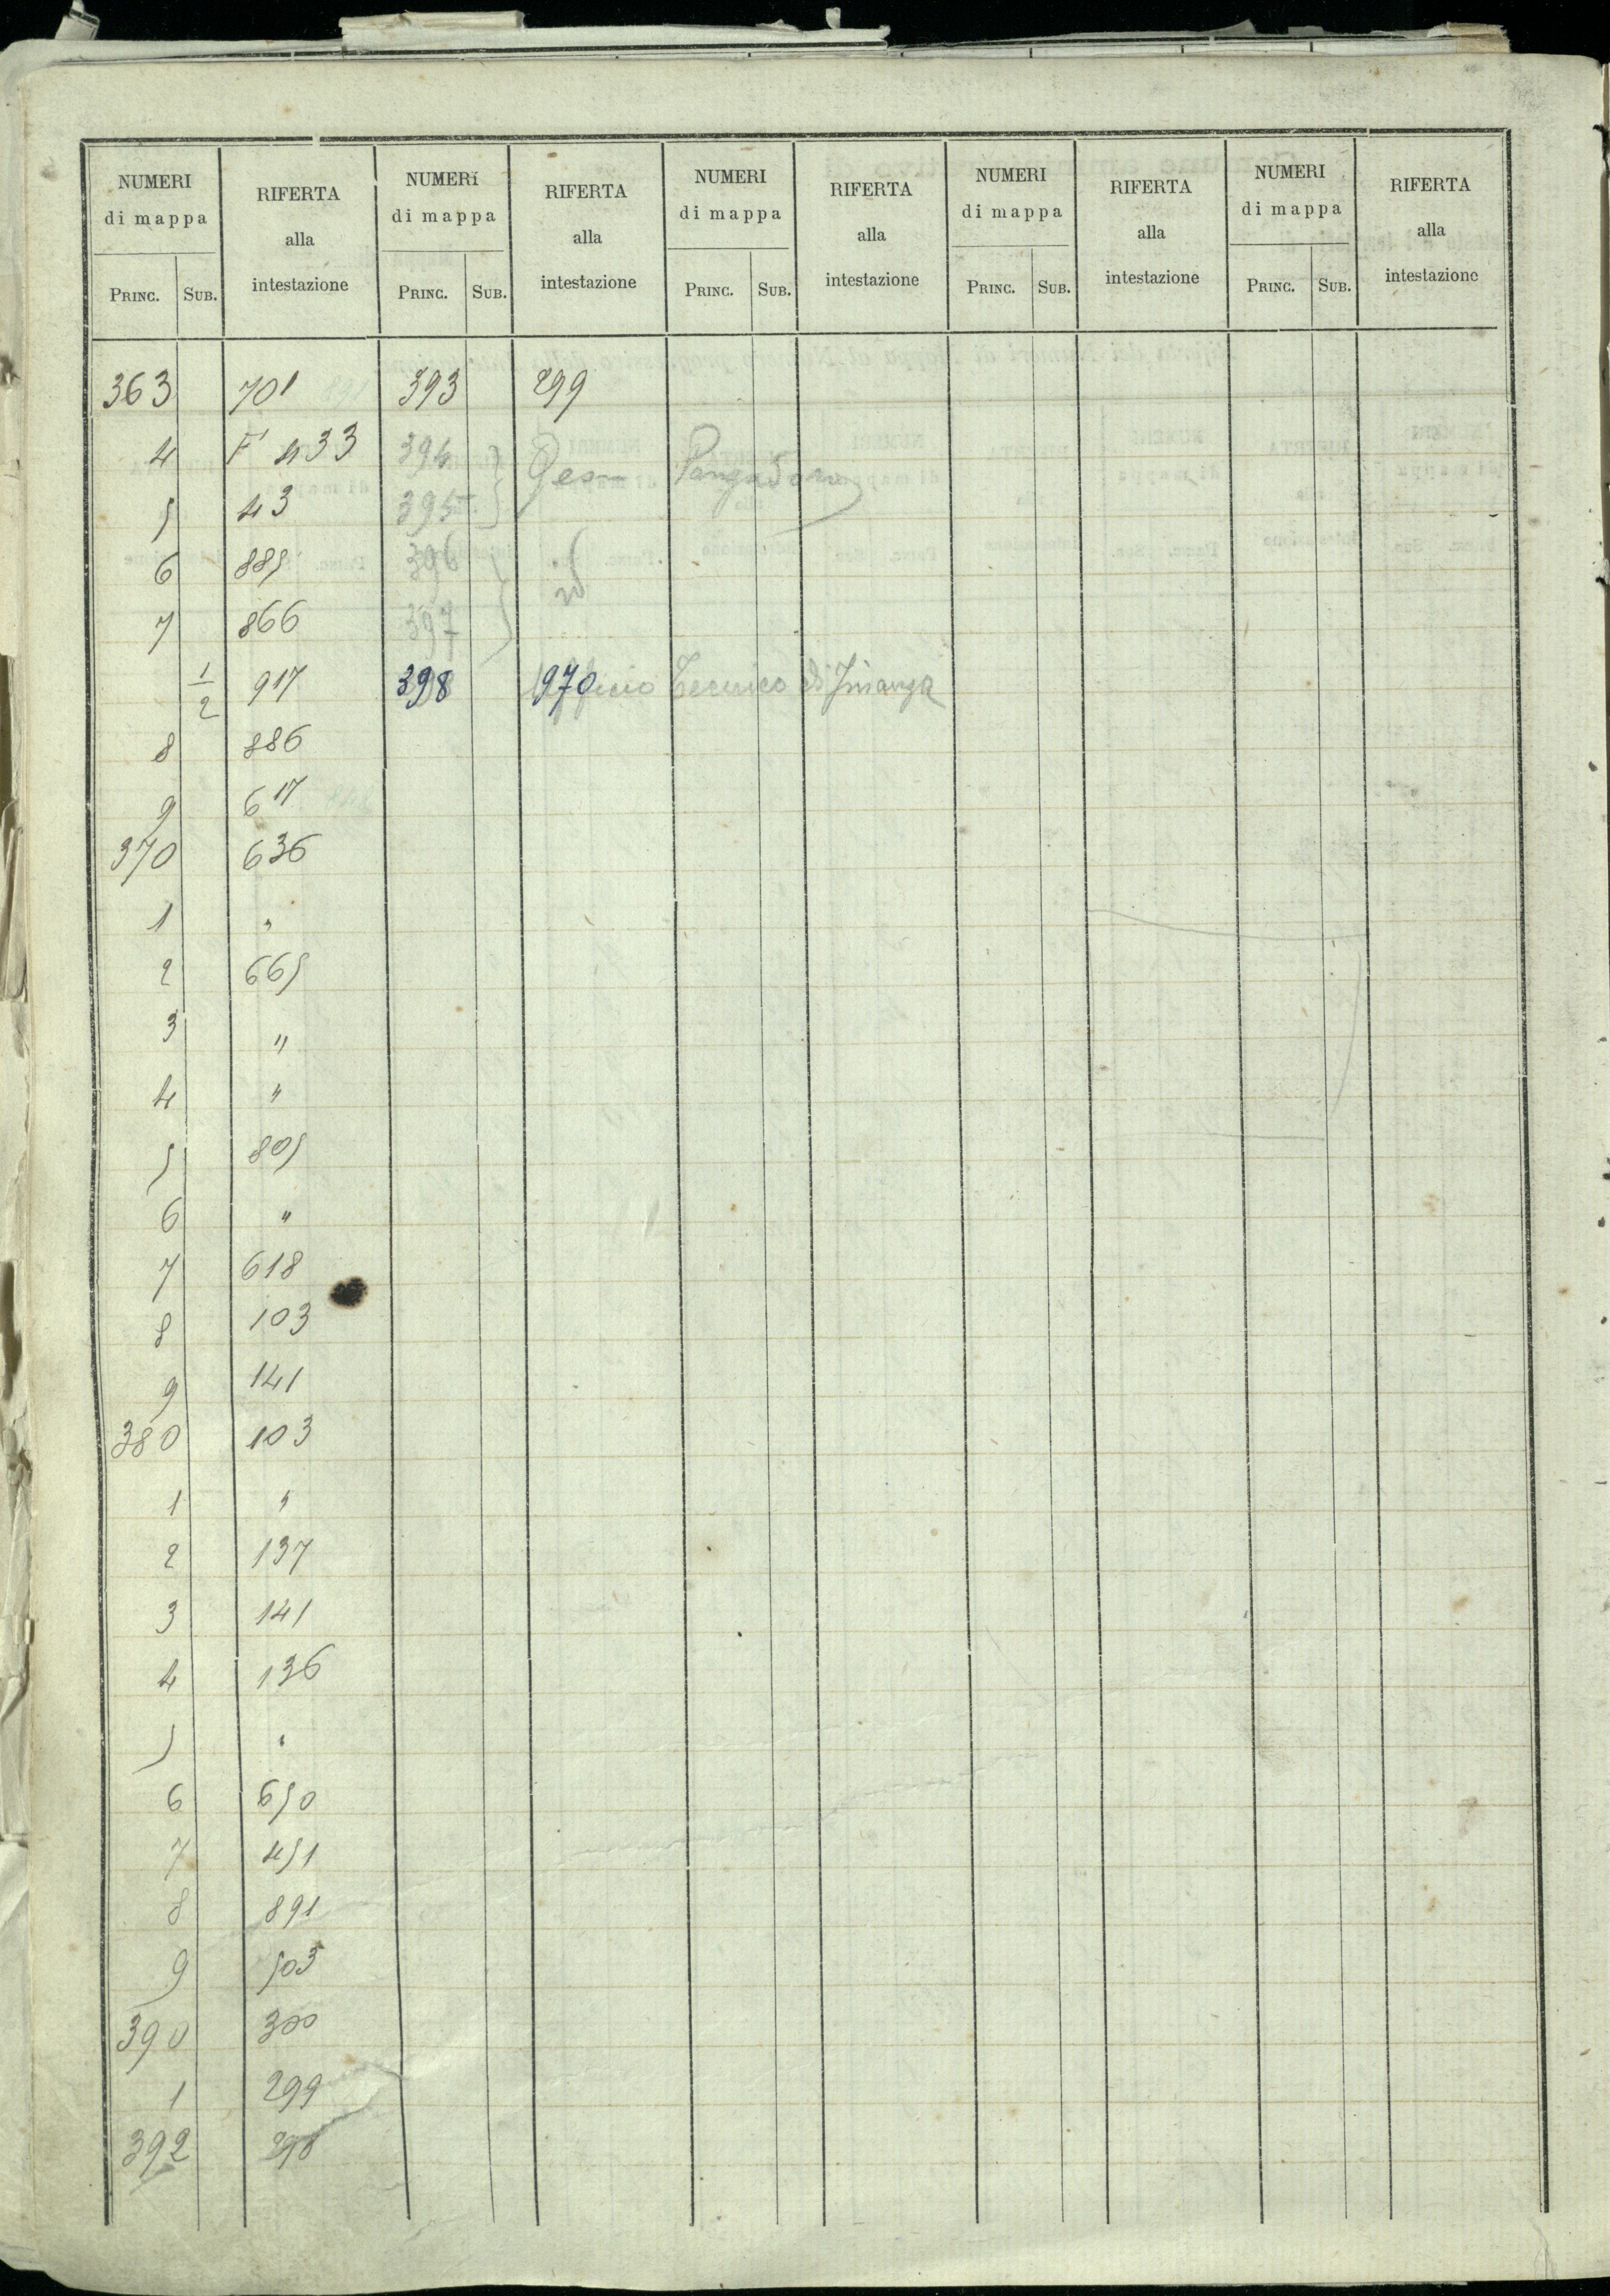 NUMERI di mappa RIFERTA alla intestazione NUMERI di mappa RIFERTA alla intestazione NUMERI di mappa RIFERTA alla intestazione NUMERI di mappa RIFERTA alla intestazione NUMERI di mappa RIFERTA alla intestazione
PRINC. SUB. PRINC. SUB. PRINC. SUB. PRINC. SUB. PRINC. SUB.
363 701 891 393 299
4 F 433 394
5 43 395
6 885 396 id
7 866 397
1/2 917 398 970 Ufficio Tecnico di Finanza
8 886
9 617
370 636
1 "
2 665
3 "
4 "
5 805
6 "
7 618
8 103
9 141
380 103
1 "
2 137
3 141
4 136
5 "
6 650
7 451
8 891
9 503
390 300
1 299
392 298